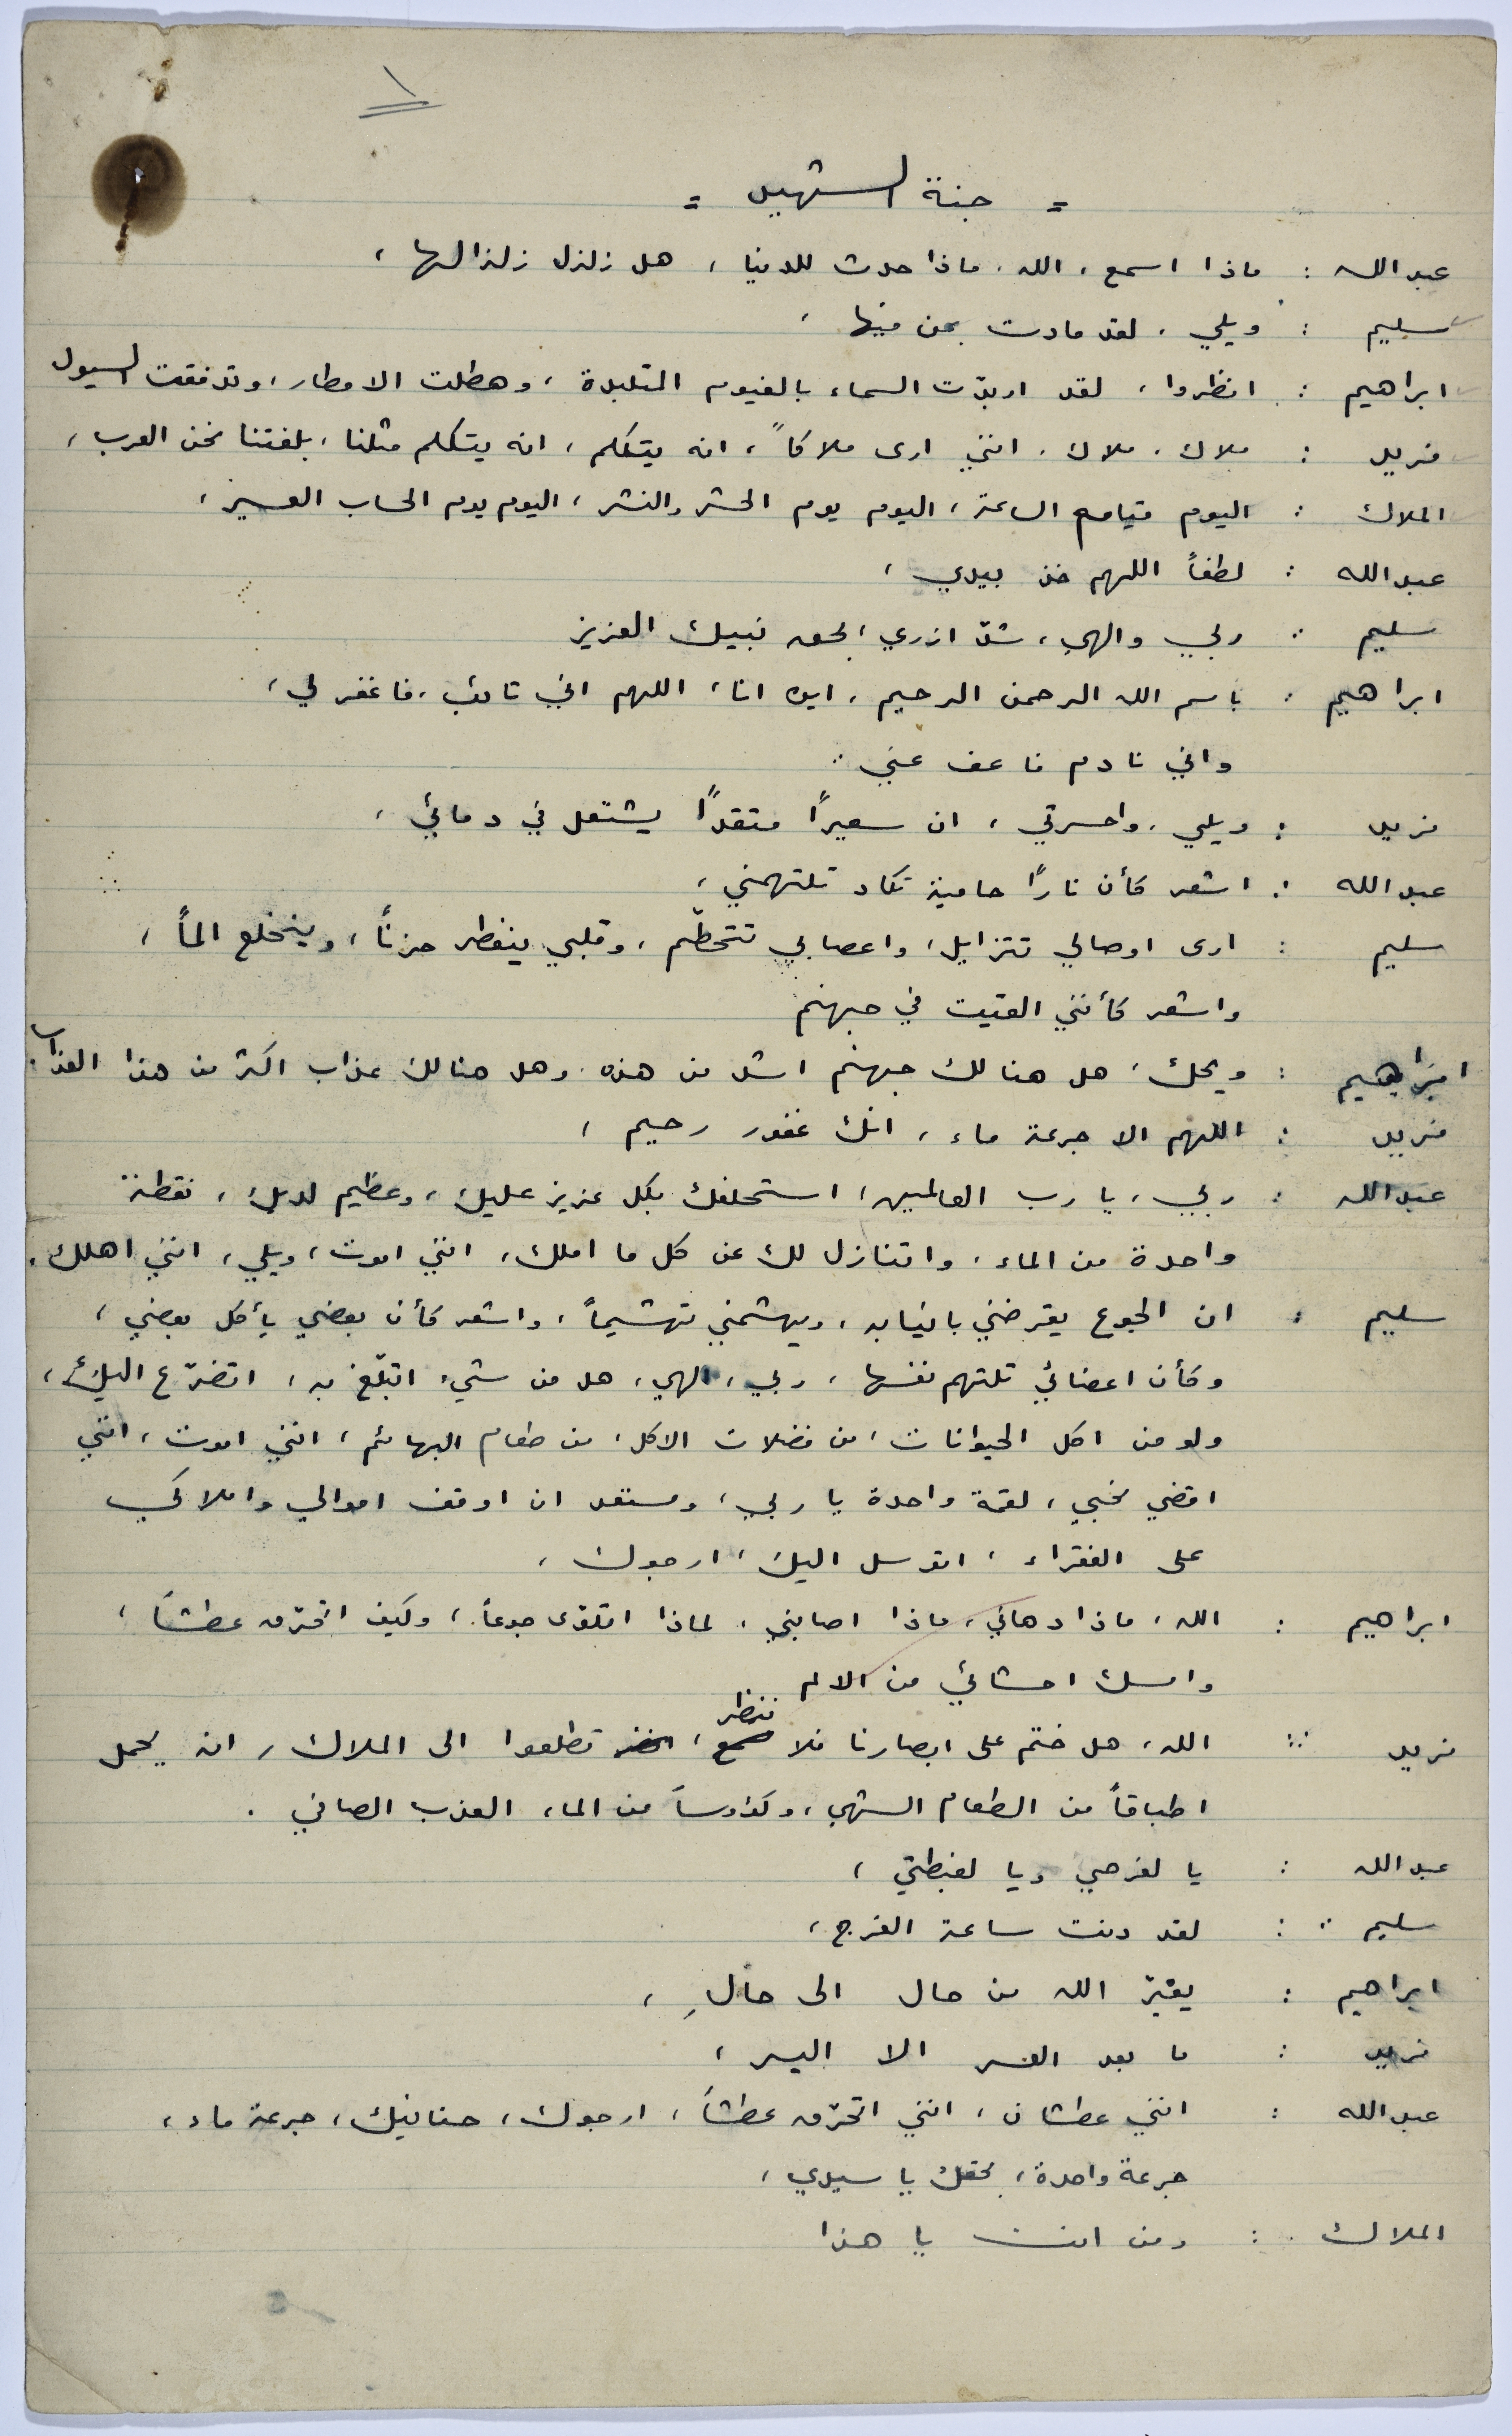 ١
= جنة الشهيد =
عبد الله : ماذا اسمع ، الله ، ماذا حدث للدنيا ، هل زلزل زلزالها ،
سليم : ويلي ، لقد مادت بمن فيها ،
ابراهيم : انظروا ، لقد اربدّت السماء بالغيوم المتلبدة ، وهطلت الامطار ، وتدفقت السيول
فريد : ملاك ، ملاك ، انني ارى ملاكاً ، انه يتكلم ، انه يتكلم مثلنا ، بلغتنا نحن العرب ،
الملاك : اليوم قيامة الساعة ، اليوم يوم الحشر والنشر ، اليوم يوم الحساب العسير ،
عبد الله : لطفاً اللهم خذ بيدي ،
سليم : ربي والهي ، شدّ ازري بحق نبيك العزيز
ابراهيم : باسم الله الرحمن الرحيم ، اين انا ، اللهم اني تائب ، فاغفر لي ،
واني نادم فاعف عني ..
فريد : ويلي ، واحسرتي ، ان سعيراً متقداً يشتعل في دمائي ،
عبد الله : اشعر كأن ناراً حامية تكاد تلتهمني ،
سليم : ارى اوصالي تتزايل ، واعصابي تتحطّم ، وقلبي ينفطر حزناً ، وينخلع الماً ،
واشعر كأنني القيت في جهنم
ابراهيم : ويحك ، هل هنالك جهنم اشد من هذه ، وهل هنالك عذاب اكثر من هذا العذاب .
فريد : اللهم الا جرعة ماء ، انك غفور رحيم ،
عبد الله : ربي ، يا رب العالمين ، استحلفك بكل عزيز عليك ، وعظيم لديك ، نقطة
واحدة من الماء ، واتنازل لك عن كل ما املك ، انني اموت ، ويلي ، انني اهلك .
سليم : ان الجوع يقرضني بانيابه ، ويهشمني تهشيماً ، واشعر كأن بعضي يأكل بعضي ،
وكأن اعضائي تلتهم نفسها ، ربي ، الهي ، هل من شيء اتبلّغ به ، اتضرّع اليك ،
ولو من اكل الحيوانات ، من فضلات الاكل ، من طعام البهائم ، انني اموت ، انني
اقضي نحبي ، لقمة واحدة يا ربي ، ومستعد ان اوقف اموالي واملاكي
على الفقراء ، اتوسل اليك ، ارجوك ،
ابراهيم : الله ، ماذا دهاني ، ماذا اصابني ، لماذا اتلوّى جوعاً ، وكيف اتحرّق عطشاً ،
وامسك احشائي من الالم
فريد : الله ، هل ختم على ابصارنا فلا ننظر ، تطلعوا الى الملاك ، انه يحمل
اطباقاً من الطعام الشهي ، وكؤوساً من الماء العذب الصافي .
عبد الله : يا لفرحي ويا لغبطتي ،
سليم : لقد دنت ساعة الفرج ،
ابراهيم : يغيّر الله من حال الى حالِ ،
فريد : ما بعد العسر الا اليسر ،
عبد الله : انني عطشان ، انني اتحرّق عطشاً ، ارجوك ، حنانيك ، جرعة ماء ،
جرعة واحدة ، بحقك يا سيدي ،
الملاك : ومن انت يا هذا